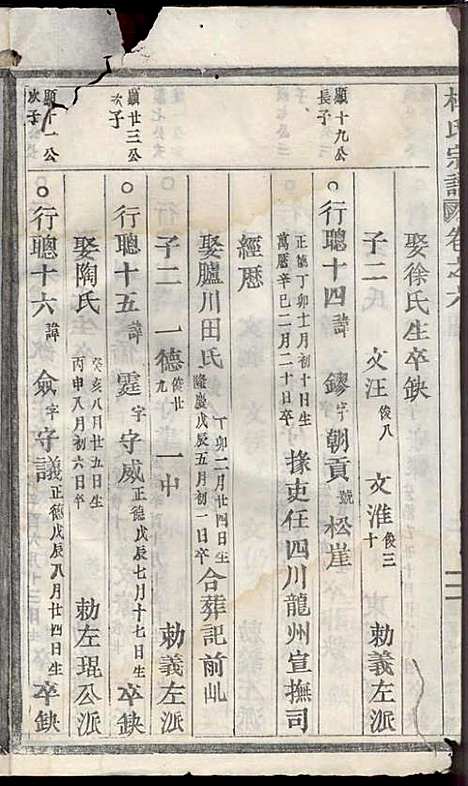 氏宗譜 卷之六
娶徐氏生卒缺
子二 文汪 俊八 文淮 俊三十 勅義左派
顯十九公長子
○行聰十四 諱鏐 字朝貢 號松崖
正德丁卯十月初十日生
萬曆辛巳二月二十日卒
掾吏任四川龍州宣撫司
經歷
娶臚川田氏
丁卯二月廿四日生
隆慶戊辰五月初一日卒
合葬記前乢
子二 一德 俊廿九 一中 勅義左派
顯廿三公次子
○行聰十五 諱霆 字守威 正德戊辰七月十七日生 卒缺
娶陶氏
癸亥八月廿五日生
丙申八月初六日卒
勅左琨公派
顯十一公次子
○行聰十六 諱僉 字守議 正德戊辰八月廿四日生 卒缺